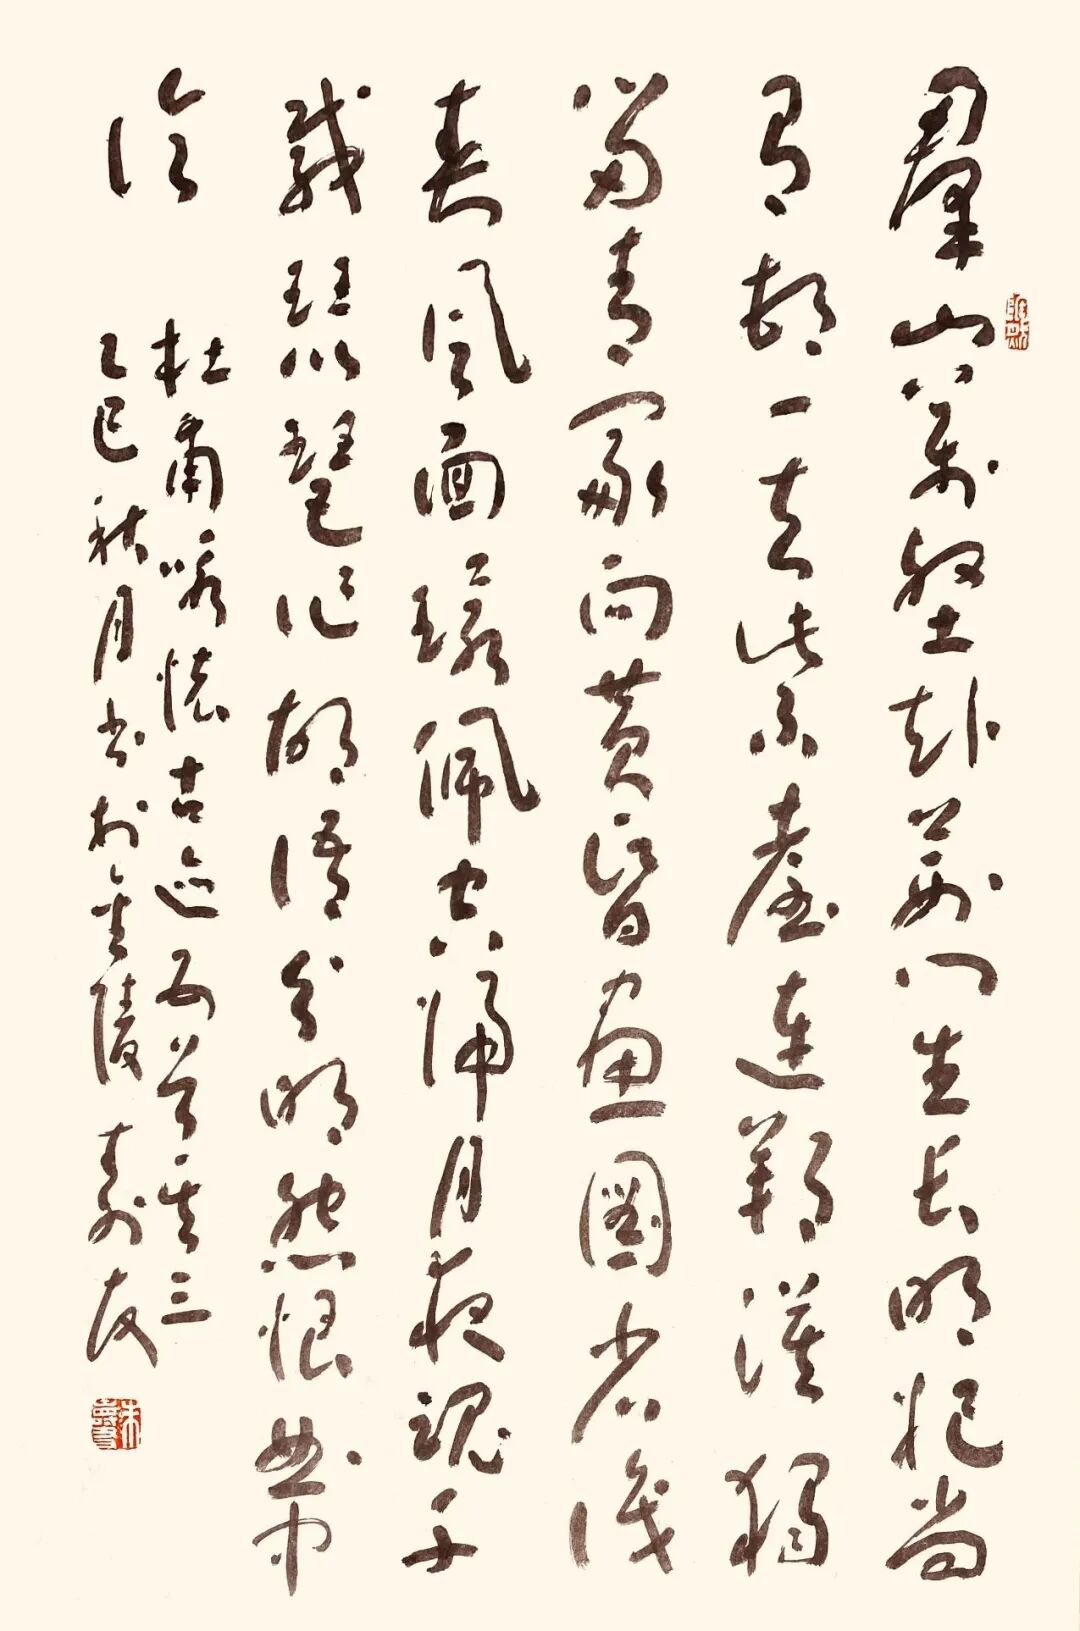 羣山萬壑赴荆門生長明妃尚
有邨一去紫臺連朔漠獨
留青冢向黄昏畫圖省識
春風面環佩空歸月夜魂千
載琵琶作胡語分明怨恨曲中
論
杜甫咏懷古迹五首其三
乙巳秋月書於金陵壽友